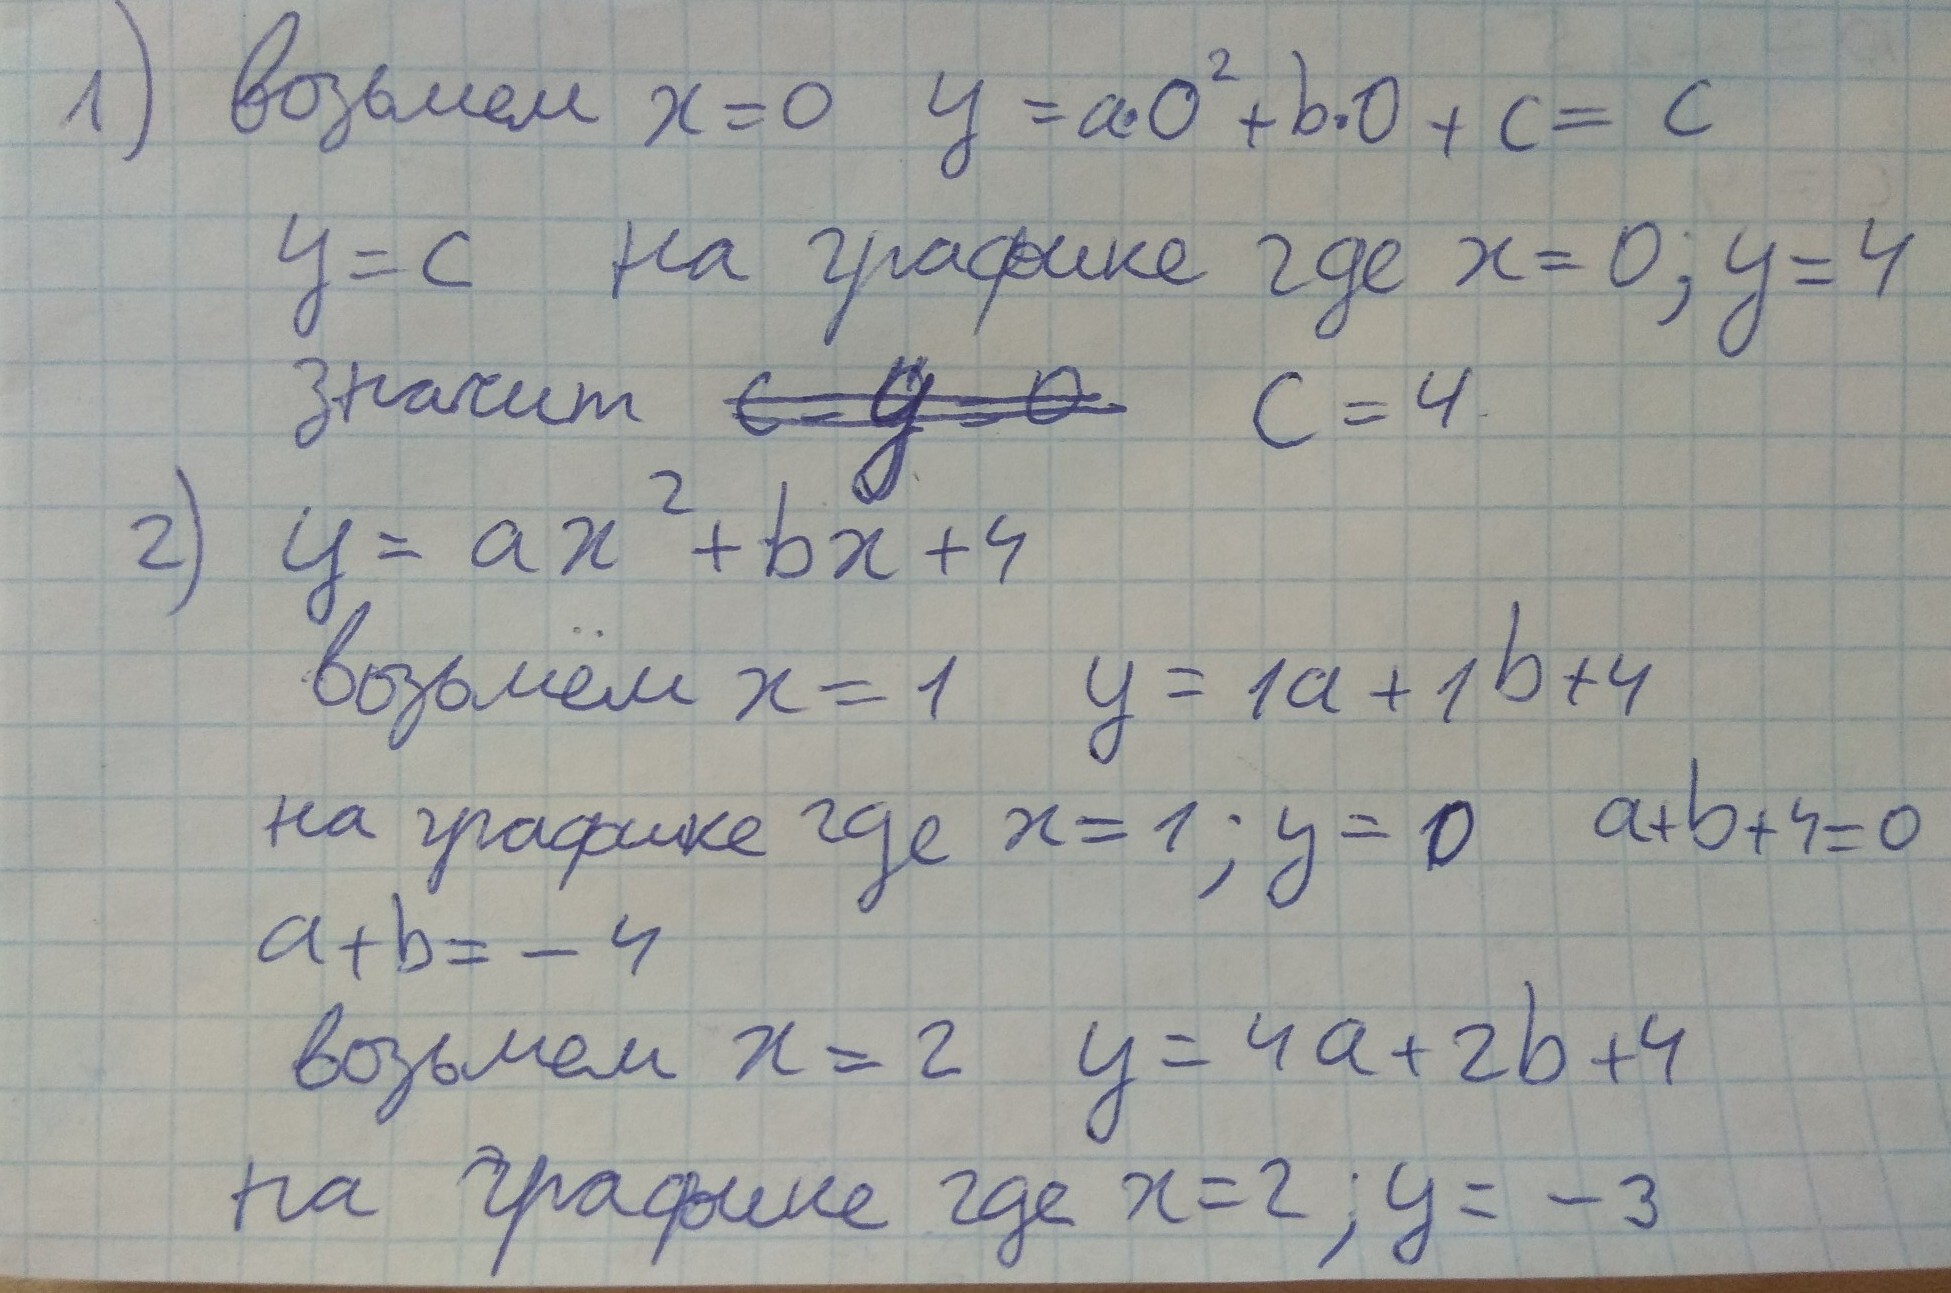 1) возьмем x=0 y=a·0²+b·0+c= c
y=c на графике где x=0; y=4
значит c=y=0 C=4
2) y= ax²+bx+4
возьмём x=1 y=1a+1b+4
на графике где x=1; y=0 a+b+4=0
a+b=-4
возьмем x=2 y=4a+2b+4
на графике где x=2; y= -3